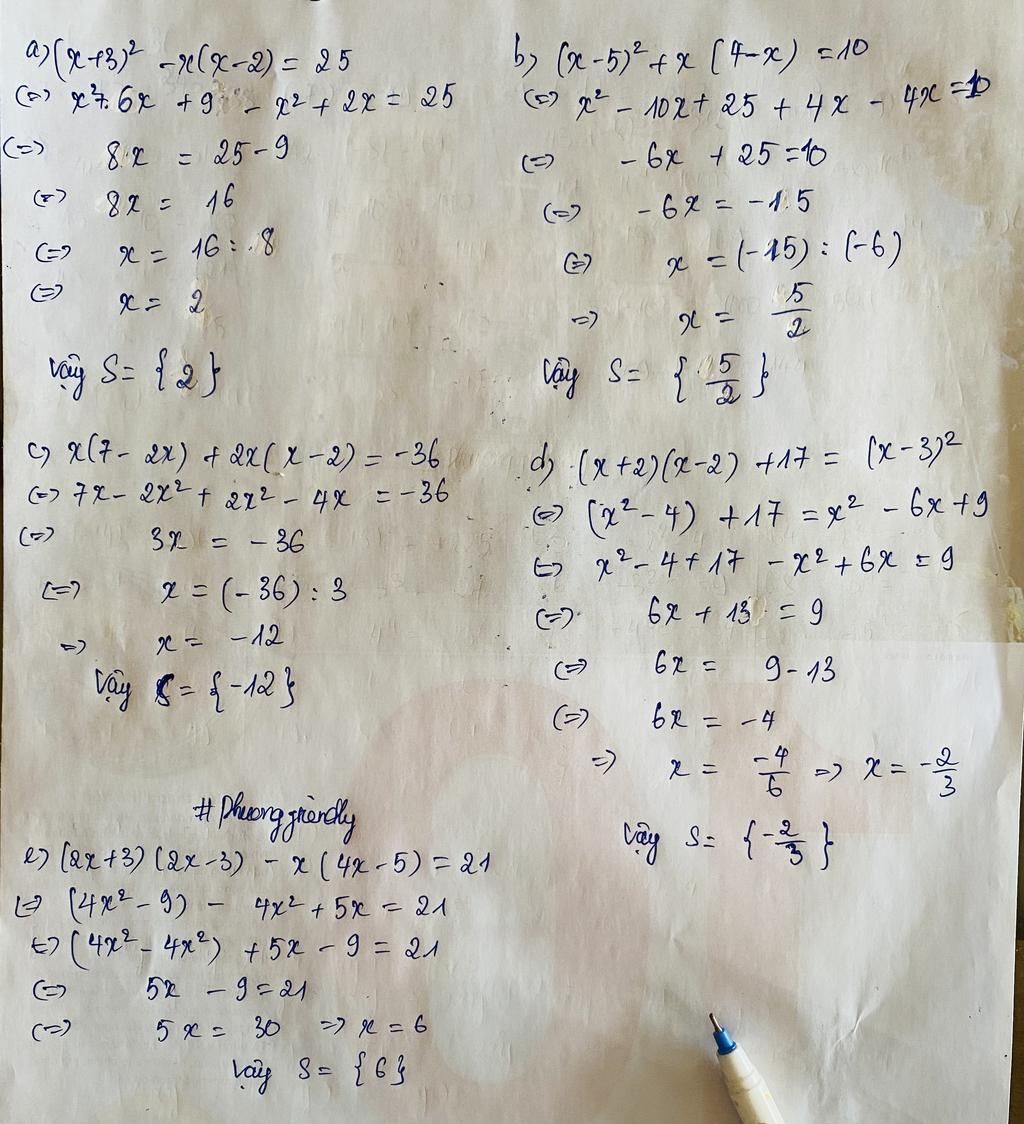 a) (x+3)² - x(x-2) = 25
(=) x² + 6x + 9 - x² + 2x = 25
(=) 8x = 25-9
(=) 8x = 16
(=) x = 16 : 8
(=) x = 2
Vậy S = {2}
b) (x-5)² + x(4-x) = 10
(=) x² - 10x + 25 + 4x - 4x = 10
(=) -6x + 25 = 10
(=) -6x = -15
(=) x = (-15) : (-6)
=) x = 5/2
Vậy S = {5/2}
c) x(7-2x) + 2x(x-2) = -36
(=) 7x - 2x² + 2x² - 4x = -36
(=) 3x = -36
(=) x = (-36) : 3
=) x = -12
Vậy S = {-12}
d) (x+2)(x-2) + 17 = (x-3)²
(=) (x²-4) + 17 = x² - 6x + 9
(=) x² - 4 + 17 - x² + 6x = 9
(=) 6x + 13 = 9
(=) 6x = 9-13
(=) 6x = -4
=) x = -4/6 =) x = -2/3
Vậy S = {-2/3}
e) (2x+3)(2x-3) - x(4x-5) = 21
(=) (4x²-9) - 4x² + 5x = 21
(=) (4x²-4x²) + 5x - 9 = 21
(=) 5x - 9 = 21
(=) 5x = 30 =) x = 6
Vậy S = {6}